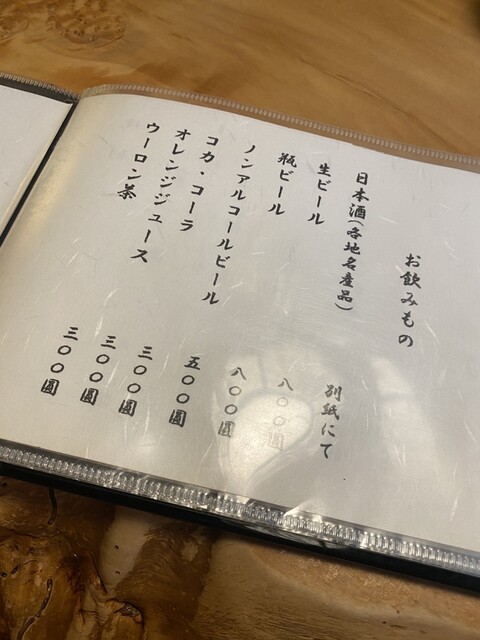 お飲みもの
日本酒(各地名産品) 別紙にて
生ビール 八〇〇圓
瓶ビール 八〇〇圓
ノンアルコールビール 五〇〇圓
コカ・コーラ 三〇〇圓
オレンジジュース 三〇〇圓
ウーロン茶 三〇〇圓